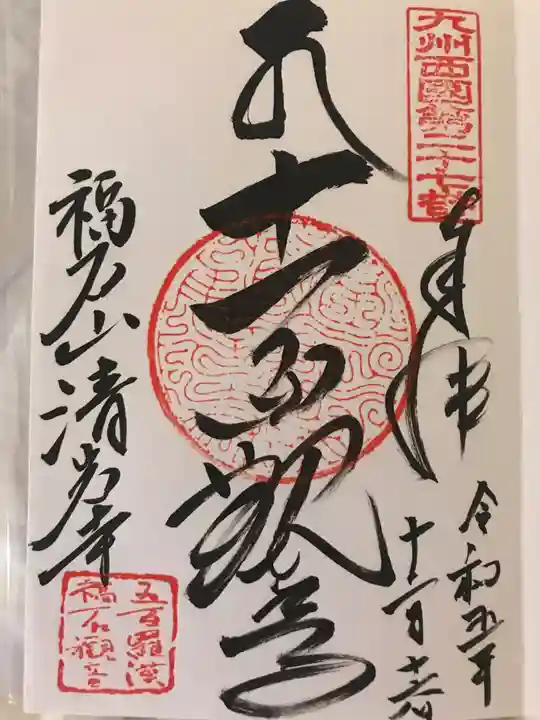 九州西國第二十七番
奉拝
令和五年
十一面観音
福石山清岩寺
五百羅漢
福石觀音